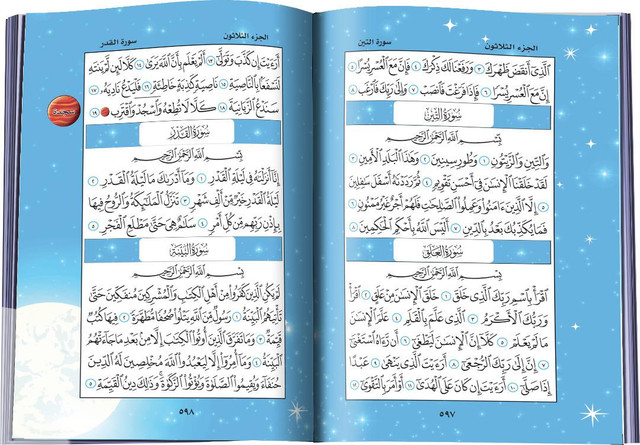 الجزء الثلاثون
سورة التين
الَّذِي أَنقَضَ ظَهْرَكَ ٣ وَرَفَعْنَا لَكَ ذِكْرَكَ ٤ فَإِنَّ مَعَ الْعُسْرِ يُسْرًا ٥
إِنَّ مَعَ الْعُسْرِ يُسْرًا ٦ فَإِذَا فَرَغْتَ فَانصَبْ ٧ وَإِلَىٰ رَبِّكَ فَارْغَب ٨
سُورَةُ التِّينِ
بِسْمِ اللَّهِ الرَّحْمَٰنِ الرَّحِيمِ
وَالتِّينِ وَالزَّيْتُونِ ١ وَطُورِ سِينِينَ ٢ وَهَٰذَا الْبَلَدِ الْأَمِينِ ٣
لَقَدْ خَلَقْنَا الْإِنسَٰنَ فِي أَحْسَنِ تَقْوِيمٍ ٤ ثُمَّ رَدَدْنَٰهُ أَسْفَلَ سَٰفِلِينَ
٥ إِلَّا الَّذِينَ ءَامَنُوا وَعَمِلُوا الصَّٰلِحَٰتِ فَلَهُمْ أَجْرٌ غَيْرُ مَمْنُونٍ ٦
فَمَا يُكَذِّبُكَ بَعْدُ بِالدِّينِ ٧ أَلَيْسَ اللَّهُ بِأَحْكَمِ الْحَٰكِمِينَ ٨
سُورَةُ العَلَقِ
بِسْمِ اللَّهِ الرَّحْمَٰنِ الرَّحِيمِ
اقْرَأْ بِاسْمِ رَبِّكَ الَّذِي خَلَقَ ١ خَلَقَ الْإِنسَٰنَ مِنْ عَلَقٍ ٢ اقْرَأْ
وَرَبُّكَ الْأَكْرَمُ ٣ الَّذِي عَلَّمَ بِالْقَلَمِ ٤ عَلَّمَ الْإِنسَٰنَ
مَا لَمْ يَعْلَمْ ٥ كَلَّا إِنَّ الْإِنسَٰنَ لَيَطْغَىٰ ٦ أَن رَّءَاهُ اسْتَغْنَىٰ
٧ إِنَّ إِلَىٰ رَبِّكَ الرُّجْعَىٰ ٨ أَرَءَيْتَ الَّذِي يَنْهَىٰ ٩ عَبْدًا
إِذَا صَلَّىٰ ١٠ أَرَءَيْتَ إِن كَانَ عَلَى الْهُدَىٰ ١١ أَوْ أَمَرَ بِالتَّقْوَىٰ ١٢
٥٩٧
الجزء الثلاثون
سورة القدر
أَرَءَيْتَ إِن كَذَّبَ وَتَوَلَّىٰ ١٣ أَلَمْ يَعْلَم بِأَنَّ اللَّهَ يَرَىٰ ١٤ كَلَّا لَئِن لَّمْ يَنتَهِ
لَنَسْفَعًا بِالنَّاصِيَةِ ١٥ نَاصِيَةٍ كَٰذِبَةٍ خَاطِئَةٍ ١٦ فَلْيَدْعُ نَادِيَهُ ١٧
سَنَدْعُ الزَّبَانِيَةَ ١٨ كَلَّا لَا تُطِعْهُ وَاسْجُدْ وَاقْتَرِب ١٩
سجدة
سُورَةُ القَدْرِ
بِسْمِ اللَّهِ الرَّحْمَٰنِ الرَّحِيمِ
إِنَّا أَنزَلْنَٰهُ فِي لَيْلَةِ الْقَدْرِ ١ وَمَا أَدْرَىٰكَ مَا لَيْلَةُ الْقَدْرِ ٢
لَيْلَةُ الْقَدْرِ خَيْرٌ مِّنْ أَلْفِ شَهْرٍ ٣ تَنَزَّلُ الْمَلَٰئِكَةُ وَالرُّوحُ فِيهَا
بِإِذْنِ رَبِّهِم مِّن كُلِّ أَمْرٍ ٤ سَلَٰمٌ هِيَ حَتَّىٰ مَطْلَعِ الْفَجْرِ ٥
سُورَةُ البَيِّنَةِ
بِسْمِ اللَّهِ الرَّحْمَٰنِ الرَّحِيمِ
لَمْ يَكُنِ الَّذِينَ كَفَرُوا مِنْ أَهْلِ الْكِتَٰبِ وَالْمُشْرِكِينَ مُنفَكِّينَ حَتَّىٰ
تَأْتِيَهُمُ الْبَيِّنَةُ ١ رَسُولٌ مِّنَ اللَّهِ يَتْلُوا صُحُفًا مُّطَهَّرَةً ٢ فِيهَا كُتُبٌ
قَيِّمَةٌ ٣ وَمَا تَفَرَّقَ الَّذِينَ أُوتُوا الْكِتَٰبَ إِلَّا مِن بَعْدِ مَا جَاءَتْهُمُ
الْبَيِّنَةُ ٤ وَمَا أُمِرُوا إِلَّا لِيَعْبُدُوا اللَّهَ مُخْلِصِينَ لَهُ الدِّينَ
حُنَفَاءَ وَيُقِيمُوا الصَّلَوٰةَ وَيُؤْتُوا الزَّكَوٰةَ وَذَٰلِكَ دِينُ الْقَيِّمَةِ ٥
٥٩٨